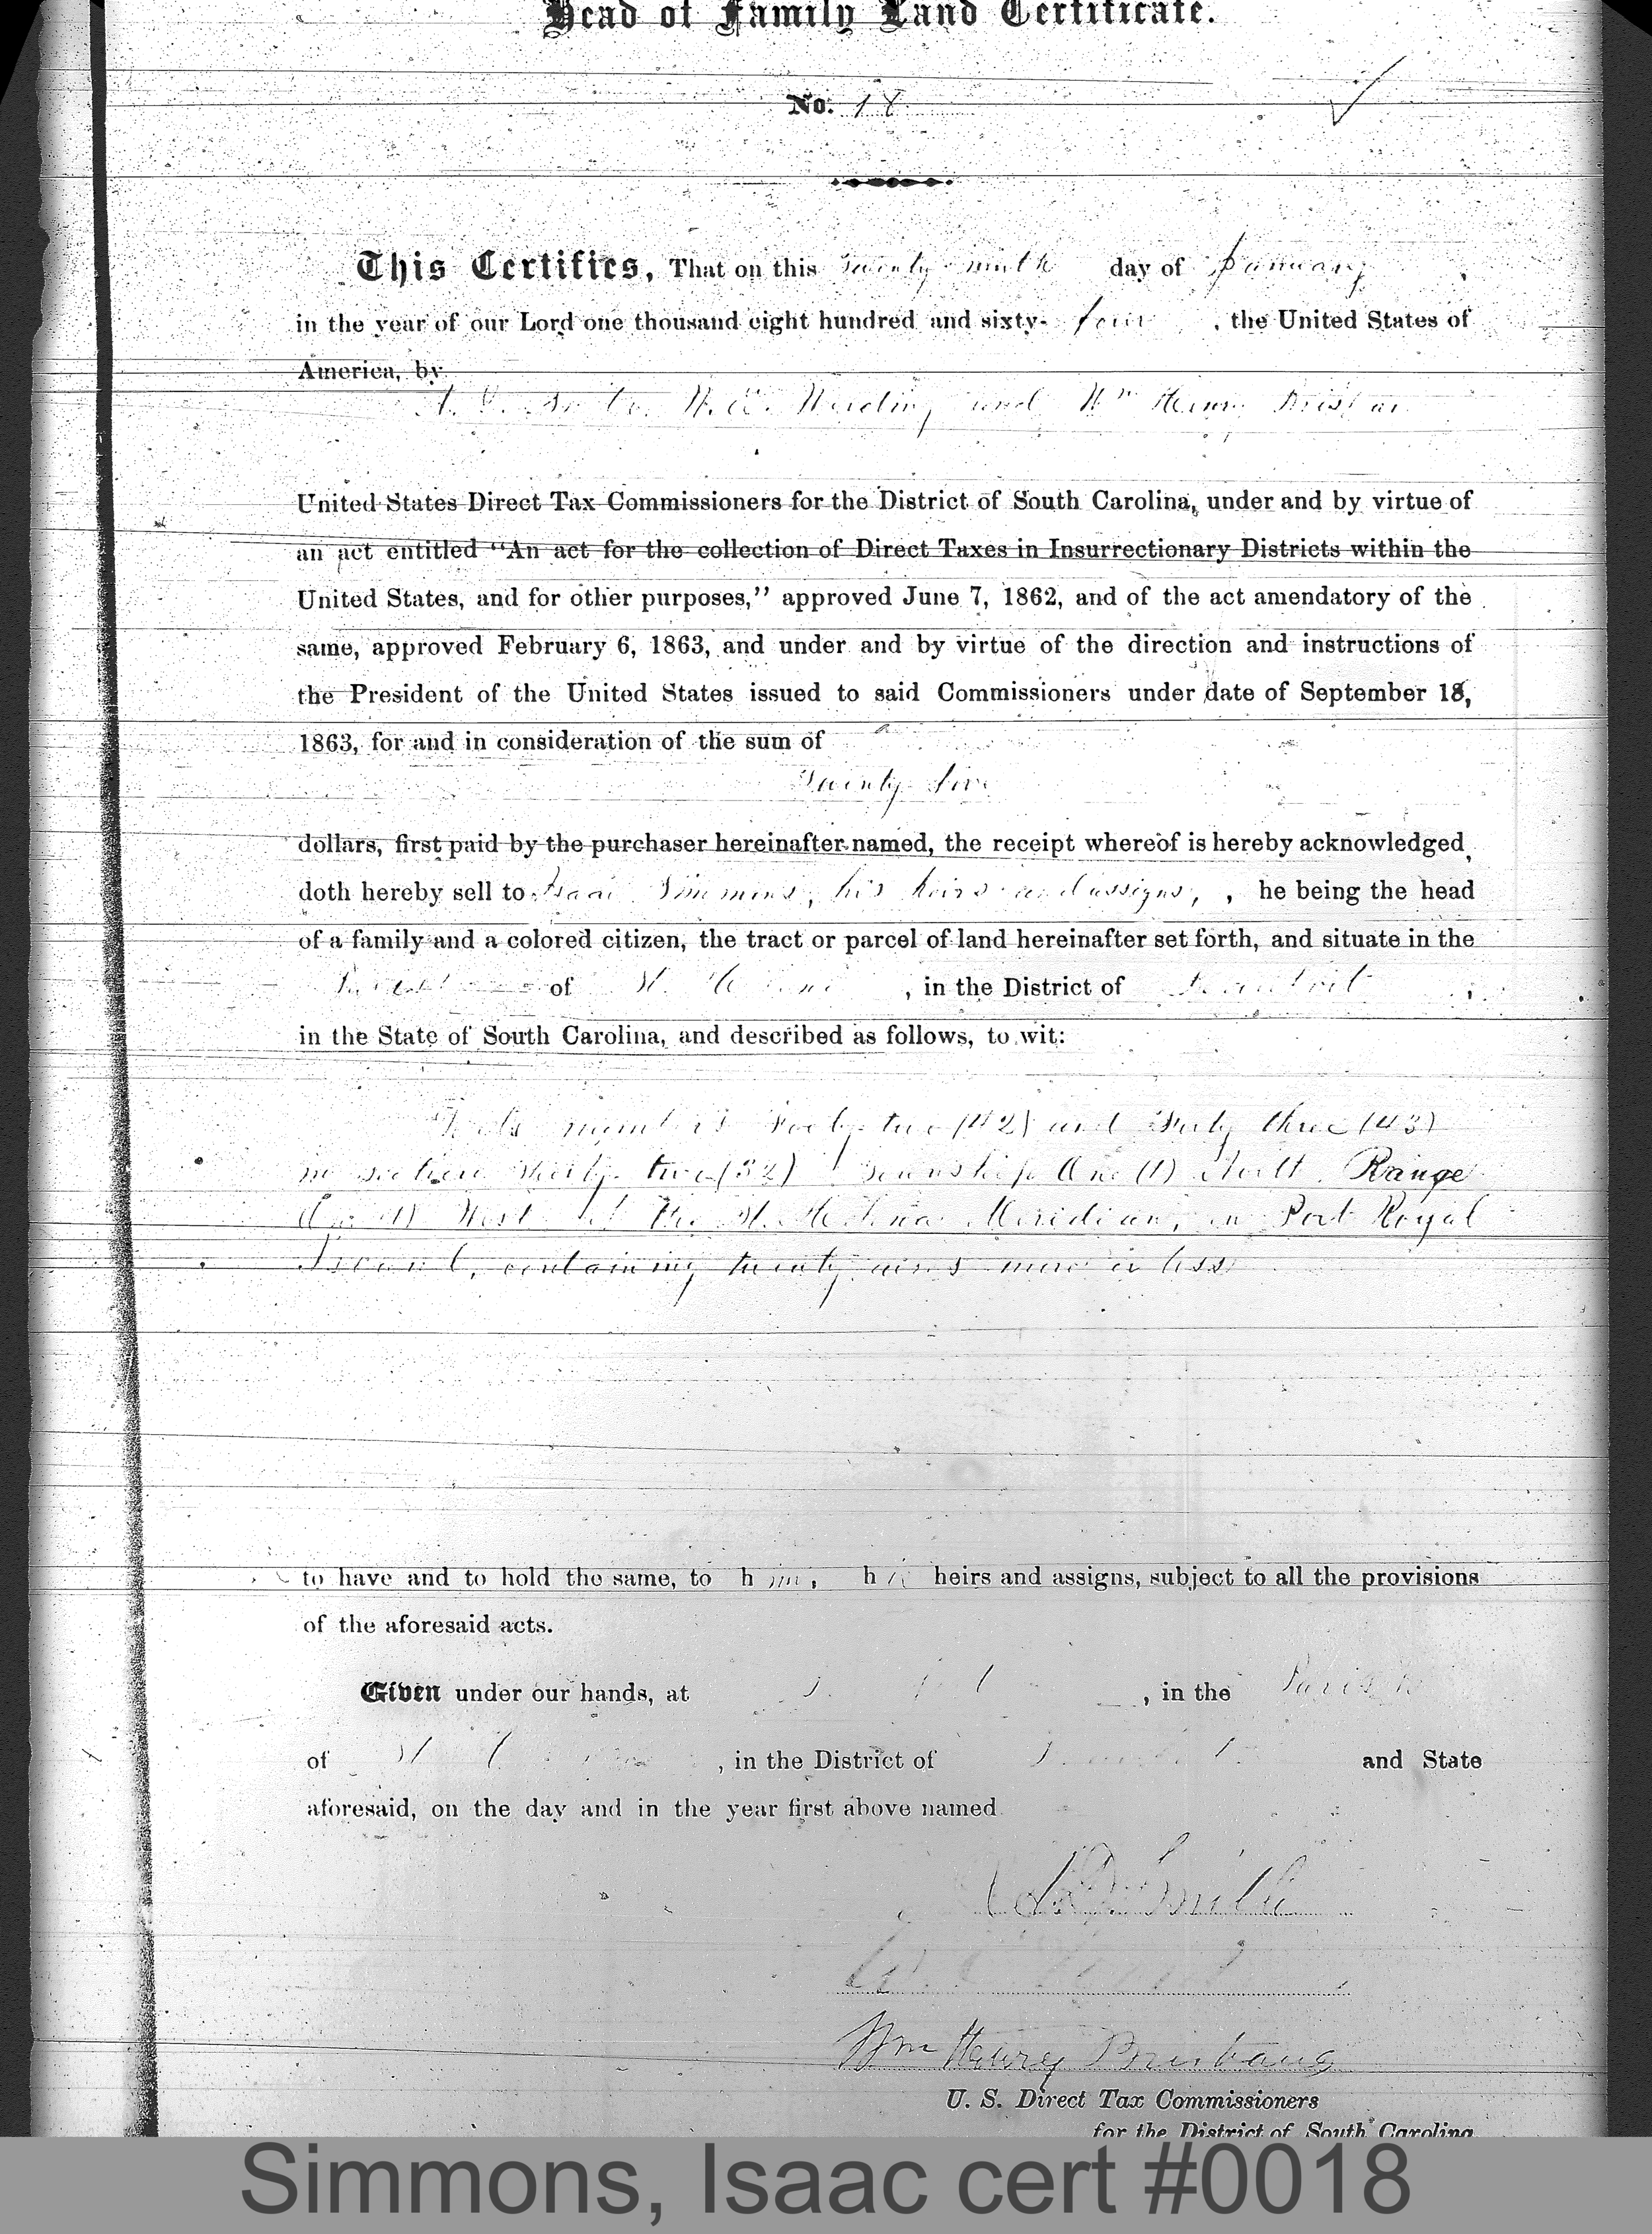 Head of Family Land Certificate.
No. 18
This Certifies, That on this Twenty ninth day of January,
in the year of our Lord one thousand eight hundred and sixty-four, the United States of
America, by
and Wm Henry
United States Direct Tax Commissioners for the District of South Carolina, under and by virtue of
an act entitled "An act for the collection of Direct Taxes in Insurrectionary Districts within the
United States, and for other purposes," approved June 7, 1862, and of the act amendatory of the
same, approved February 6, 1863, and under and by virtue of the direction and instructions of
the President of the United States issued to said Commissioners under date of September 18,
1863, for and in consideration of the sum of
Twenty five
dollars, first paid by the purchaser hereinafter named, the receipt whereof is hereby acknowledged,
doth hereby sell to Isaac Simmons, his heirs and assigns, , he being the head
of a family and a colored citizen, the tract or parcel of land hereinafter set forth, and situate in the
of St. Helena, in the District of Beaufort,
in the State of South Carolina, and described as follows, to wit:
Lots numbers Forty two (42) and Forty three (43)
in section thirty two (32) Township One (1) North Range
One (1) West of the St. Helena Meridian, in Port Royal
Island, containing twenty acres more or less
to have and to hold the same, to him, his heirs and assigns, subject to all the provisions
of the aforesaid acts.
Given under our hands, at , in the Parish
of St. Helena, in the District of Beaufort and State
aforesaid, on the day and in the year first above named
A. D. Smith
Wm Henry Brisbane
U. S. Direct Tax Commissioners
for the District of South Carolina
Simmons, Isaac cert #0018